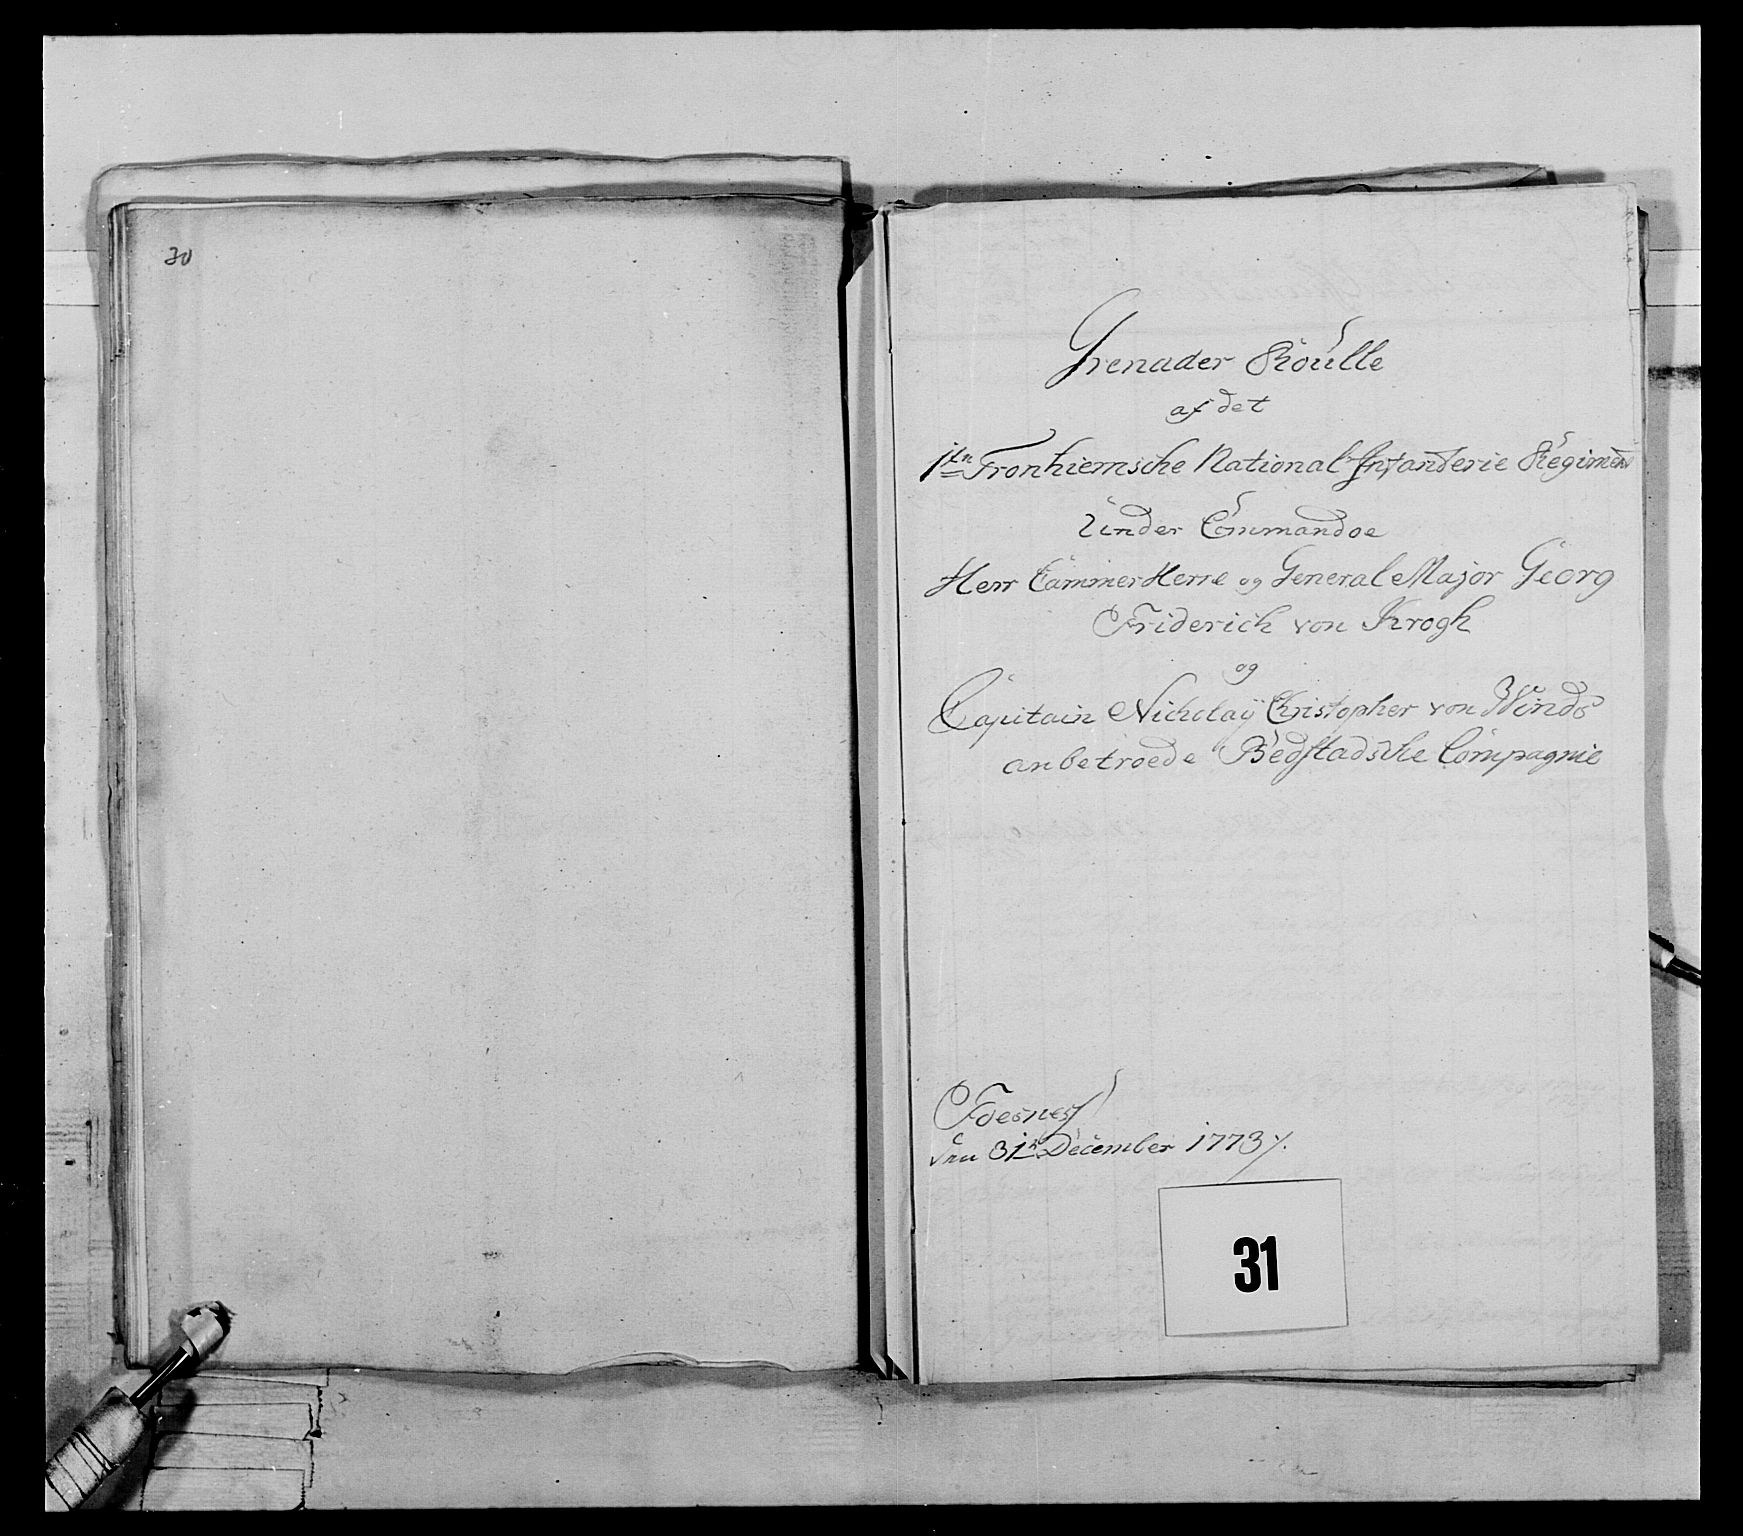 30
Grenader Roulle
af det
1ten Tronhiemsche National Infanterie Regiment
Under Commandoe
Herr CammerHerre og General Major Georg
Friderich von Krogh
og
Capitain Nicholaÿ Christopher von Winds
anbetroede Bedstadsche Compagnie
Foesnes
den 31te December 1773 ⁒.
31